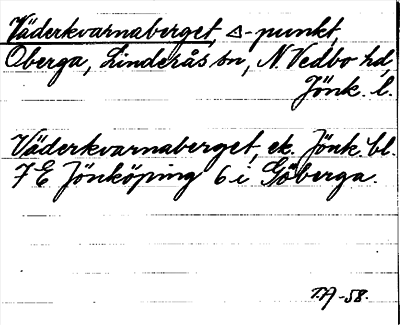 Väderkvarnaberget, △-punkt,
Öberga, Linderås sn, N. Vedbo hd,
Jönk. l.
Väderkvarnaberget, ek. Jönk. bl.
7 E Jönköping 6 i Göberga.
T.A -58.